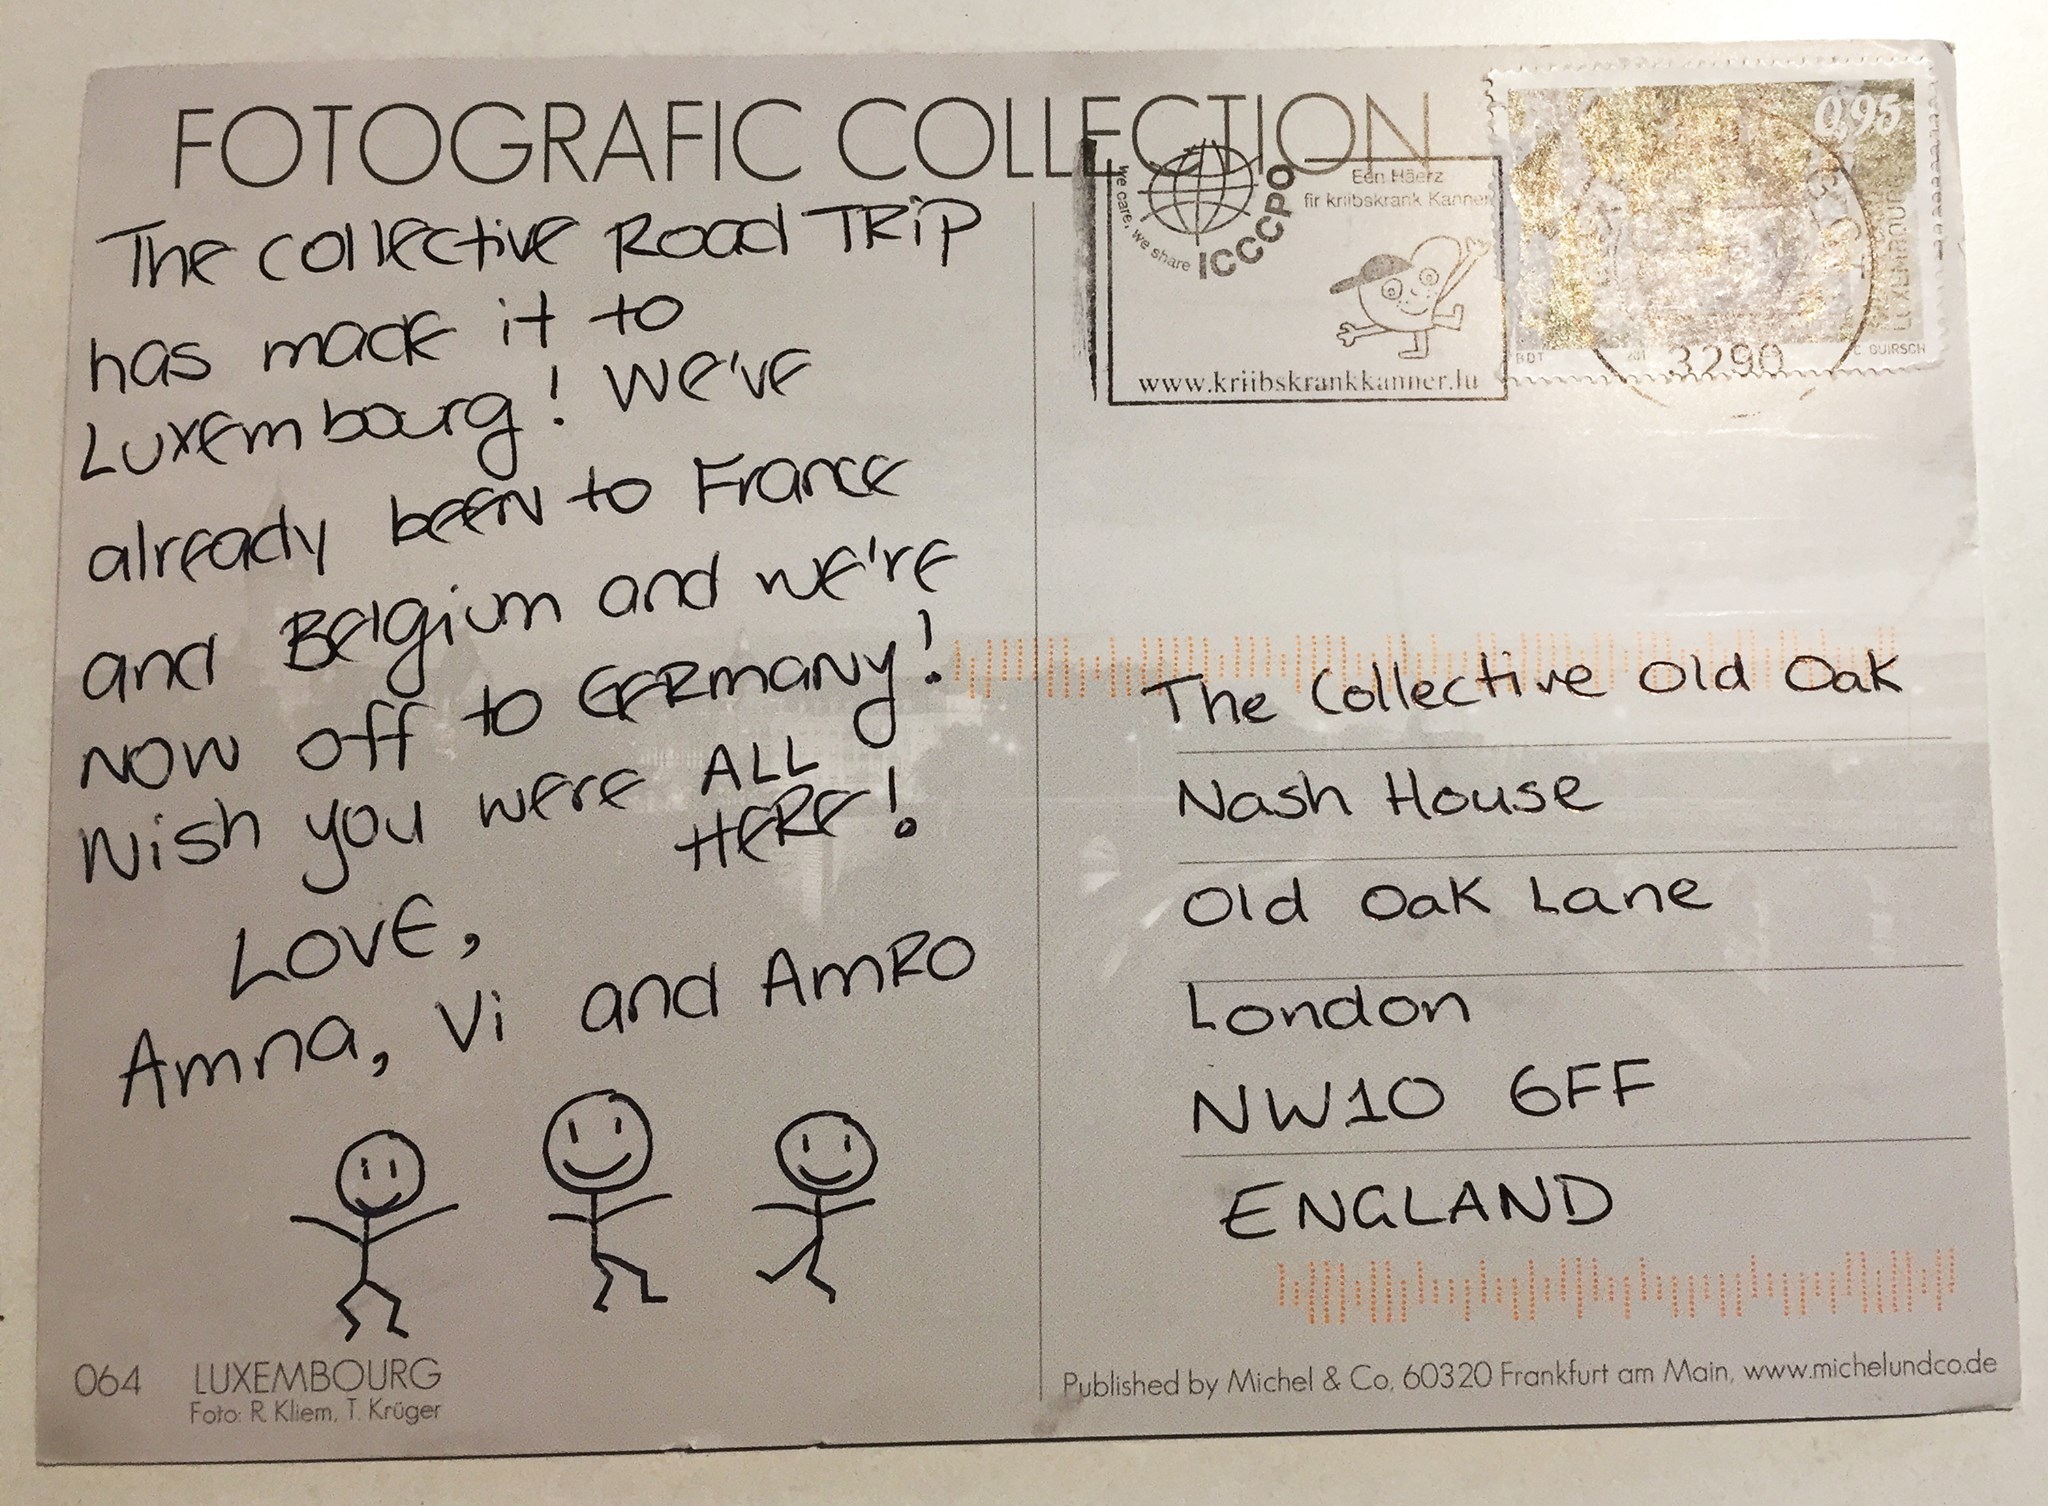 FOTOGRAFIC COLLECTION
The collective Road TRiP
has made it to
Luxembourg! We've
already been to France
and Belgium and we're
now off to GERMANY!
Wish you were ALL
HERE!
LOVE,
Amna, Vi and AMRO
064 LUXEMBOURG
Foto: R. Kliem, T. Krüger
we care, we share
ICCCPO
Een Häerz
fir kriibskrank Kanner
www.kriibskrankkanner.lu
0,95
LUXEMBOURG
BDT
C. GUIRSCH
3290
The Collective Old Oak
Nash House
Old Oak Lane
London
NW10 6FF
ENGLAND
Published by Michel & Co, 60320 Frankfurt am Main, www.michelundco.de